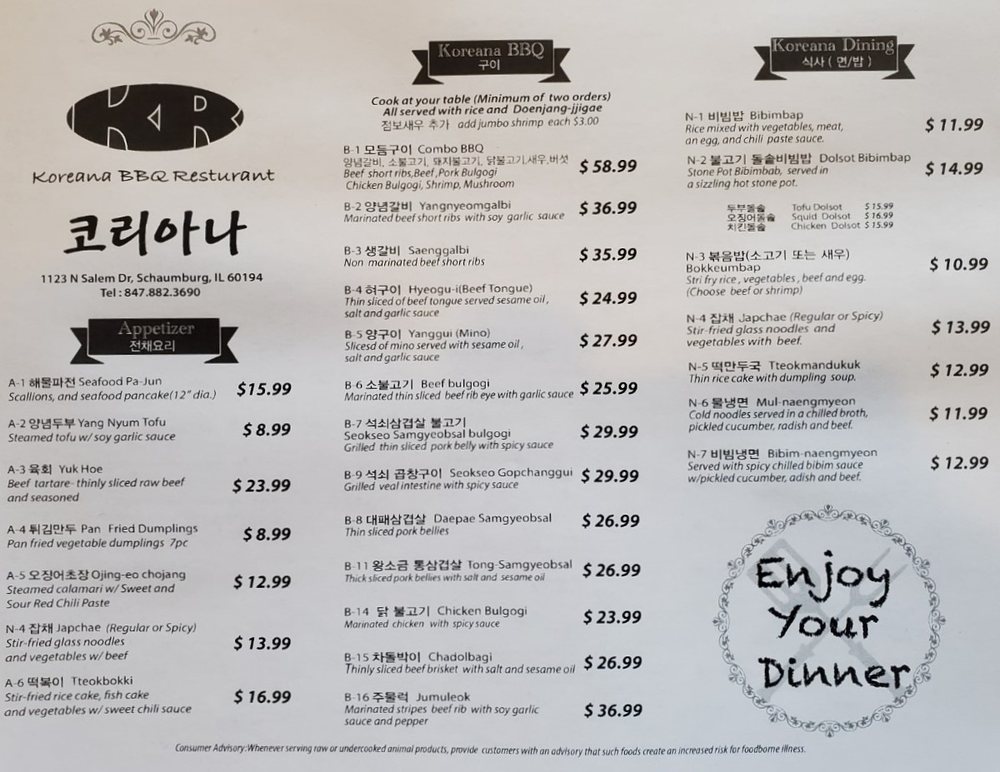 KBR
Koreana BBQ Resturant
코리아나
1123 N Salem Dr, Schaumburg, IL 60194
Tel : 847.882.3690
Appetizer
전채요리
A-1 해물파전 Seafood Pa-Jun
Scallions, and seafood pancake(12" dia.) $15.99
A-2 양념두부 Yang Nyum Tofu
Steamed tofu w/ soy garlic sauce $ 8.99
A-3 육회 Yuk Hoe
Beef tartare- thinly sliced raw beef
and seasoned $ 23.99
A-4 튀김만두 Pan Fried Dumplings
Pan fried vegetable dumplings 7pc $ 8.99
A-5 오징어초장 Ojing-eo chojang
Steamed calamari w/ Sweet and
Sour Red Chili Paste $ 12.99
N-4 잡채 Japchae (Regular or Spicy)
Stir-fried glass noodles
and vegetables w/ beef $ 13.99
A-6 떡볶이 Tteokbokki
Stir-fried rice cake, fish cake
and vegetables w/ sweet chili sauce $ 16.99
Koreana BBQ
구이
Cook at your table (Minimum of two orders)
All served with rice and Doenjang-jjigae
점보새우 추가 add jumbo shrimp each $3.00
B-1 모듬구이 Combo BBQ
양념갈비, 소불고기, 돼지불고기, 닭불고기,새우,버섯
Beef short ribs,Beef ,Pork Bulgogi
Chicken Bulgogi, Shrimp, Mushroom $ 58.99
B-2 양념갈비 Yangnyeomgalbi
Marinated beef short ribs with soy garlic sauce $ 36.99
B-3 생갈비 Saenggalbi
Non marinated beef short ribs $ 35.99
B-4 혀구이 Hyeogu-i(Beef Tongue)
Thin sliced of beef tongue served sesame oil ,
salt and garlic sauce $ 24.99
B-5 양구이 Yanggui (Mino)
Slicesd of mino served with sesame oil ,
salt and garlic sauce $ 27.99
B-6 소불고기 Beef bulgogi
Marinated thin sliced beef rib eye with garlic sauce $ 25.99
B-7 석쇠삼겹살 불고기
Seokseo Samgyeobsal bulgogi
Grilled thin sliced pork belly with spicy sauce $ 29.99
B-9 석쇠 곱창구이 Seokseo Gopchanggui
Grilled veal intestine with spicy sauce $ 29.99
B-8 대패삼겹살 Daepae Samgyeobsal
Thin sliced pork bellies $ 26.99
B-11 왕소금 통삼겹살 Tong-Samgyeobsal
Thick sliced pork bellies with salt and sesame oil $ 26.99
B-14 닭 불고기 Chicken Bulgogi
Marinated chicken with spicy sauce $ 23.99
B-15 차돌박이 Chadolbagi
Thinly sliced beef brisket with salt and sesame oil $ 26.99
B-16 주물럭 Jumuleok
Marinated stripes beef rib with soy garlic
sauce and pepper $ 36.99
Koreana Dining
식사 ( 면/밥 )
N-1 비빔밥 Bibimbap
Rice mixed with vegetables, meat,
an egg, and chili paste sauce. $ 11.99
N-2 불고기 돌솥비빔밥 Dolsot Bibimbap
Stone Pot Bibimbab, served in
a sizzling hot stone pot. $ 14.99
두부돌솥 Tofu Dolsot $ 15.99
오징어돌솥 Squid Dolsot $ 16.99
치킨돌솥 Chicken Dolsot $ 15.99
N-3 볶음밥(소고기 또는 새우)
Bokkeumbap
Stri fry rice , vegetables , beef and egg.
(Choose beef or shrimp) $ 10.99
N-4 잡채 Japchae (Regular or Spicy)
Stir-fried glass noodles and
vegetables with beef. $ 13.99
N-5 떡만두국 Tteokmandukuk
Thin rice cake with dumpling soup. $ 12.99
N-6 물냉면 Mul-naengmyeon
Cold noodles served in a chilled broth,
pickled cucumber, radish and beef. $ 11.99
N-7 비빔냉면 Bibim-naengmyeon
Served with spicy chilled bibim sauce
w/pickled cucumber, adish and beef. $ 12.99
Enjoy
Your
Dinner
Consumer Advisory:Whenever serving raw or undercooked animal products, provide customers with an advisory that such foods create an increased risk for foodborne illness.